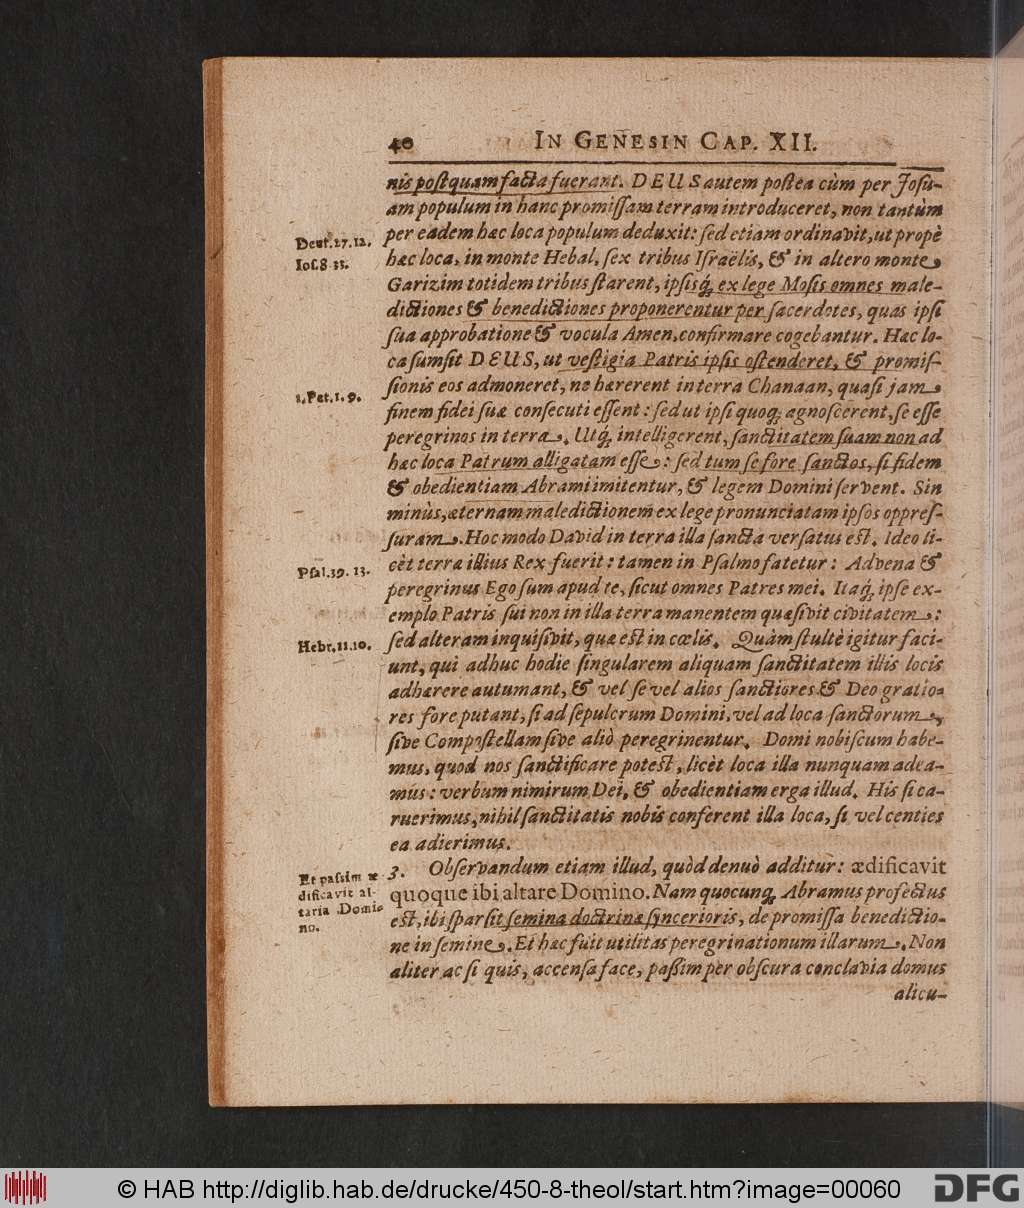 40 IN GENESIN CAP. XII.
nis postquam facta fuerant. DEUS autem postea cùm per Josu-
am populum in hanc promissam terram introduceret, non tantùm
per eadem hæc loca populum deduxit: sed etiam ordinavit, ut propè
Deut. 27. 12.
Ios. 8. 33.
hæc loca, in monte Hebal, sex tribus Israëlis, & in altero monte
Garizim totidem tribus starent, ipsisq́, ex lege Mosis omnes male-
dictiones & benedictiones proponerentur per sacerdotes, quas ipsi
sua approbatione & vocula Amen, confirmare cogebantur. Hæc lo-
ca sumsit DEUS, ut vestigia Patris ipsis ostenderet, & promis-
sionis eos admoneret, ne hærerent in terra Chanaan, quasi jam
1. Pet. 1. 9.
finem fidei suæ consecuti essent: sed ut ipsi quoq; agnoscerent, se esse
peregrinos in terra. Utq́, intelligerent, sanctitatem suam non ad
hæc loca Patrum alligatam esse: sed tum se fore sanctos, si fidem
& obedientiam Abrami imitentur, & legem Domini servent. Sin
minùs, æternam maledictionem ex lege pronunciatam ipsos oppres-
suram. Hoc modo David in terra illa sancta versatus est. Ideo li-
cèt terræ illius Rex fuerit: tamen in Psalmo fatetur: Advena &
Psal. 39. 13.
peregrinus Ego sum apud te, sicut omnes Patres mei. Itaq́, ipse ex-
emplo Patris sui non in illa terra manentem quæsivit civitatem:
sed alteram inquisivit, quæ est in cœlis. Quàm stultè igitur faci-
Hebr. 11. 10.
unt, qui adhuc hodie singularem aliquam sanctitatem illis locis
adhærere autumant, & vel se vel alios sanctiores & Deo gratio-
res fore putant, si ad sepulcrum Domini, vel ad loca sanctorum,
sive Compostellam sive aliò peregrinentur. Domi nobiscum habe-
mus, quod nos sanctificare potest, licèt loca illa nunquam adea-
mus: verbum nimirum Dei, & obedientiam erga illud. His si ca-
ruerimus, nihil sanctitatis nobis conferent illa loca, si vel centies
ea adierimus.
Et passim æ-
dificavit al-
taria Domi-
no.
3. Observandum etiam illud, quòd denuò additur: ædificavit
quoque ibi altare Domino. Nam quocunq, Abramus profectus
est, ibi sparsit semina doctrinæ syncerioris, de promissa benedictio-
ne in semine. Et hæc fuit utilitas peregrinationum illarum. Non
aliter ac si quis, accensa face, paßim per obscura conclavia domus
alicu-
© HAB http://diglib.hab.de/drucke/450-8-theol/start.htm?image=00060
DFG